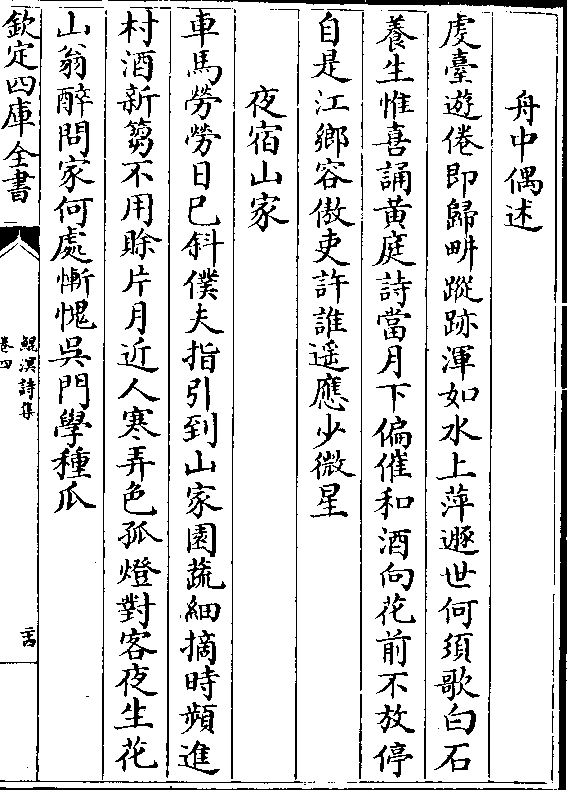 舟中偶述
虔臺遊倦即歸畊蹤跡渾如水上萍遯世何須歌白石
養生惟喜誦黃庭詩當月下偏催和酒向花前不放停
自是江鄉容傲吏許誰遥應少微星
夜宿山家
車馬勞勞日已斜僕夫指引到山家園蔬細摘時頻進
村酒新篘不用賖片月近人寒弄色孤燈對客夜生花
山翁醉問家何處慚愧吳門學種瓜
欽定四庫全書
鯤溟詩集
卷四